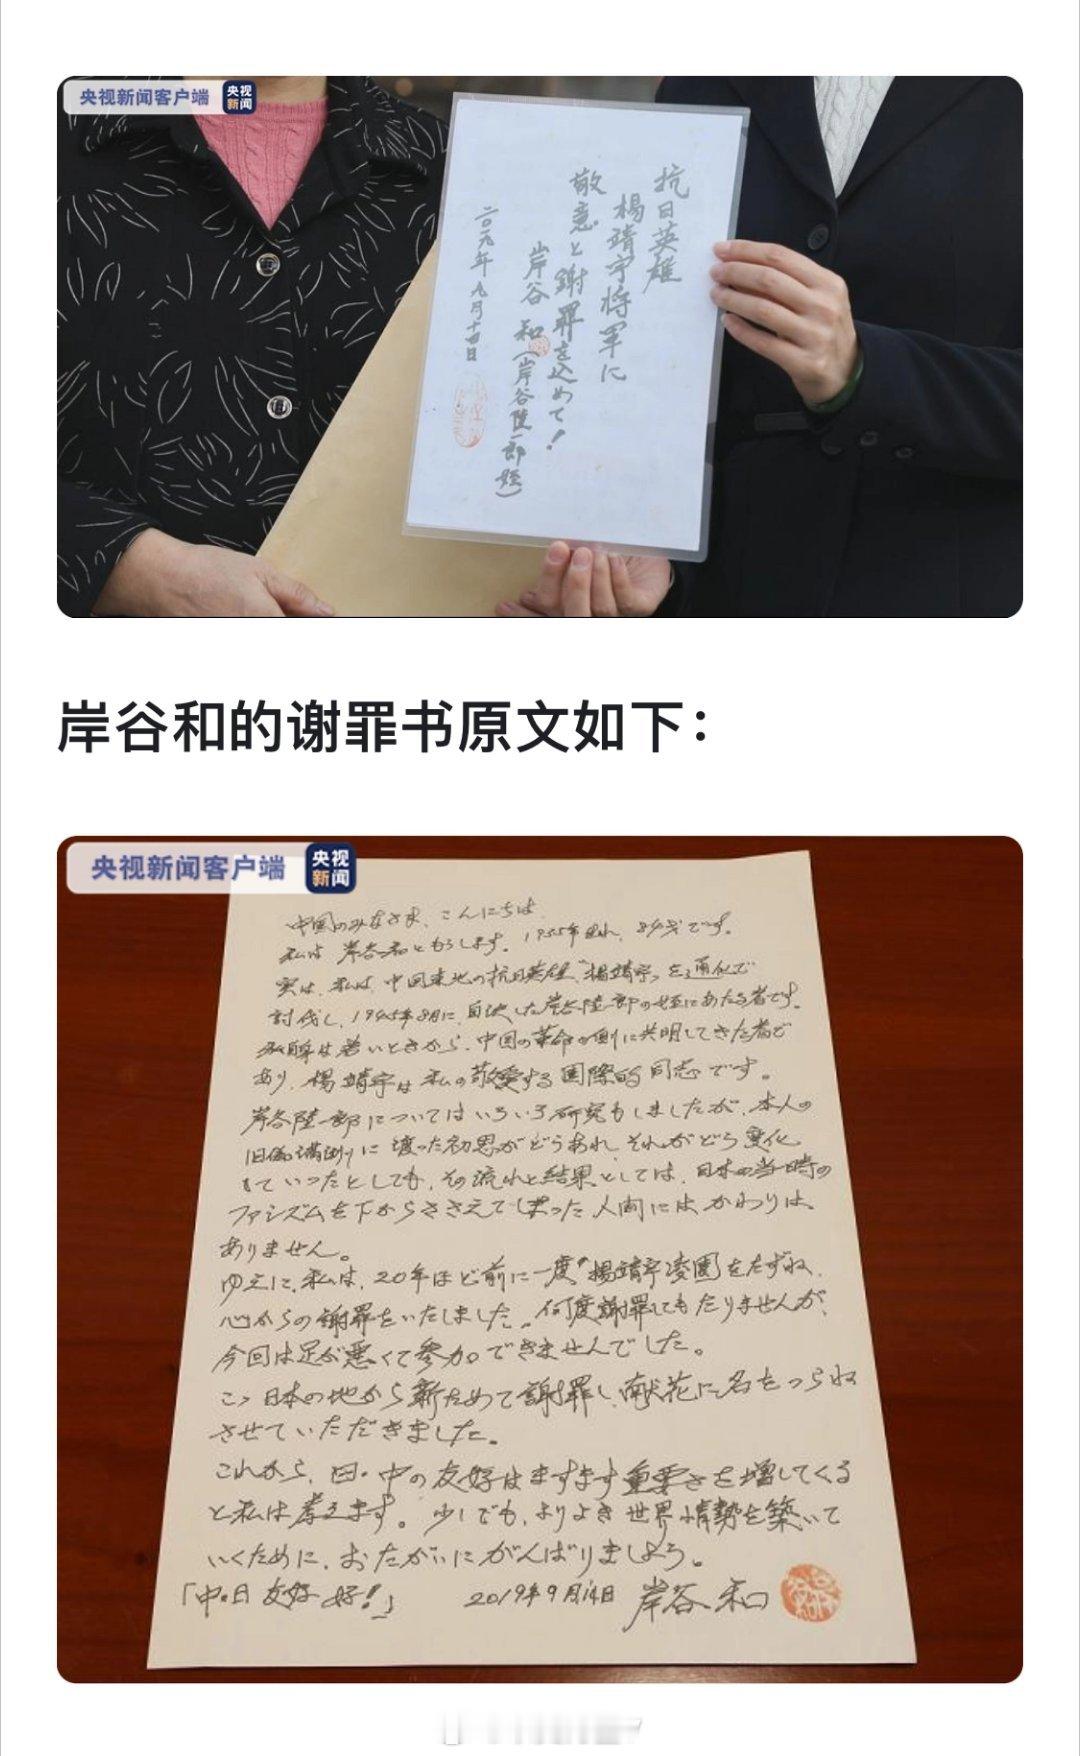 央视新闻客户端
央视
新闻
抗日英雄
楊靖宇将軍に
敬意と謝罪を込めて！
岸谷 和（岸谷隆一郎 姪）
二〇一九年九月十四日
岸谷和的谢罪书原文如下：
央视新闻客户端
央视
新闻
中国のみなさま、こんにちは
私は 岸谷和ともうします。19 年生れ、84才です。
実は、私は、中国東北の抗日英雄、"楊靖宇"を通化で
討伐し、1945年8月に、自決した岸谷隆一郎の姪にあたる者です。
私自身は若いときから、中国の革命の側に共鳴してきた者で
あり、楊靖宇は私の敬愛する国際的同志です。
岸谷隆一郎についてはいろいろ研究もしましたが、本人の
旧偽満州に渡った初思がどうあれ、それがどう変化
していったとしても、その流れと結果としては、日本の当時の
ファシズムを下からささえてしまった人間にはかわりは、
ありません。
ゆえに、私は、20年ほど前に一度"楊靖宇凌園をたずね、
心からの謝罪をいたしました。何度謝罪してもたりませんが、
今回は足が悪くて参加できませんでした。
こゝ日本の地から新ためて謝罪し、献花に名をつらね
させていただきました。
これから、日・中の友好はますます重要さを増してくる
と私は考えます。少しでも、よりよき世界情勢を築いて
いくために、おたがいにがんばりましよう。
「中・日 友好 好！」 2019年9月14日 岸谷 和